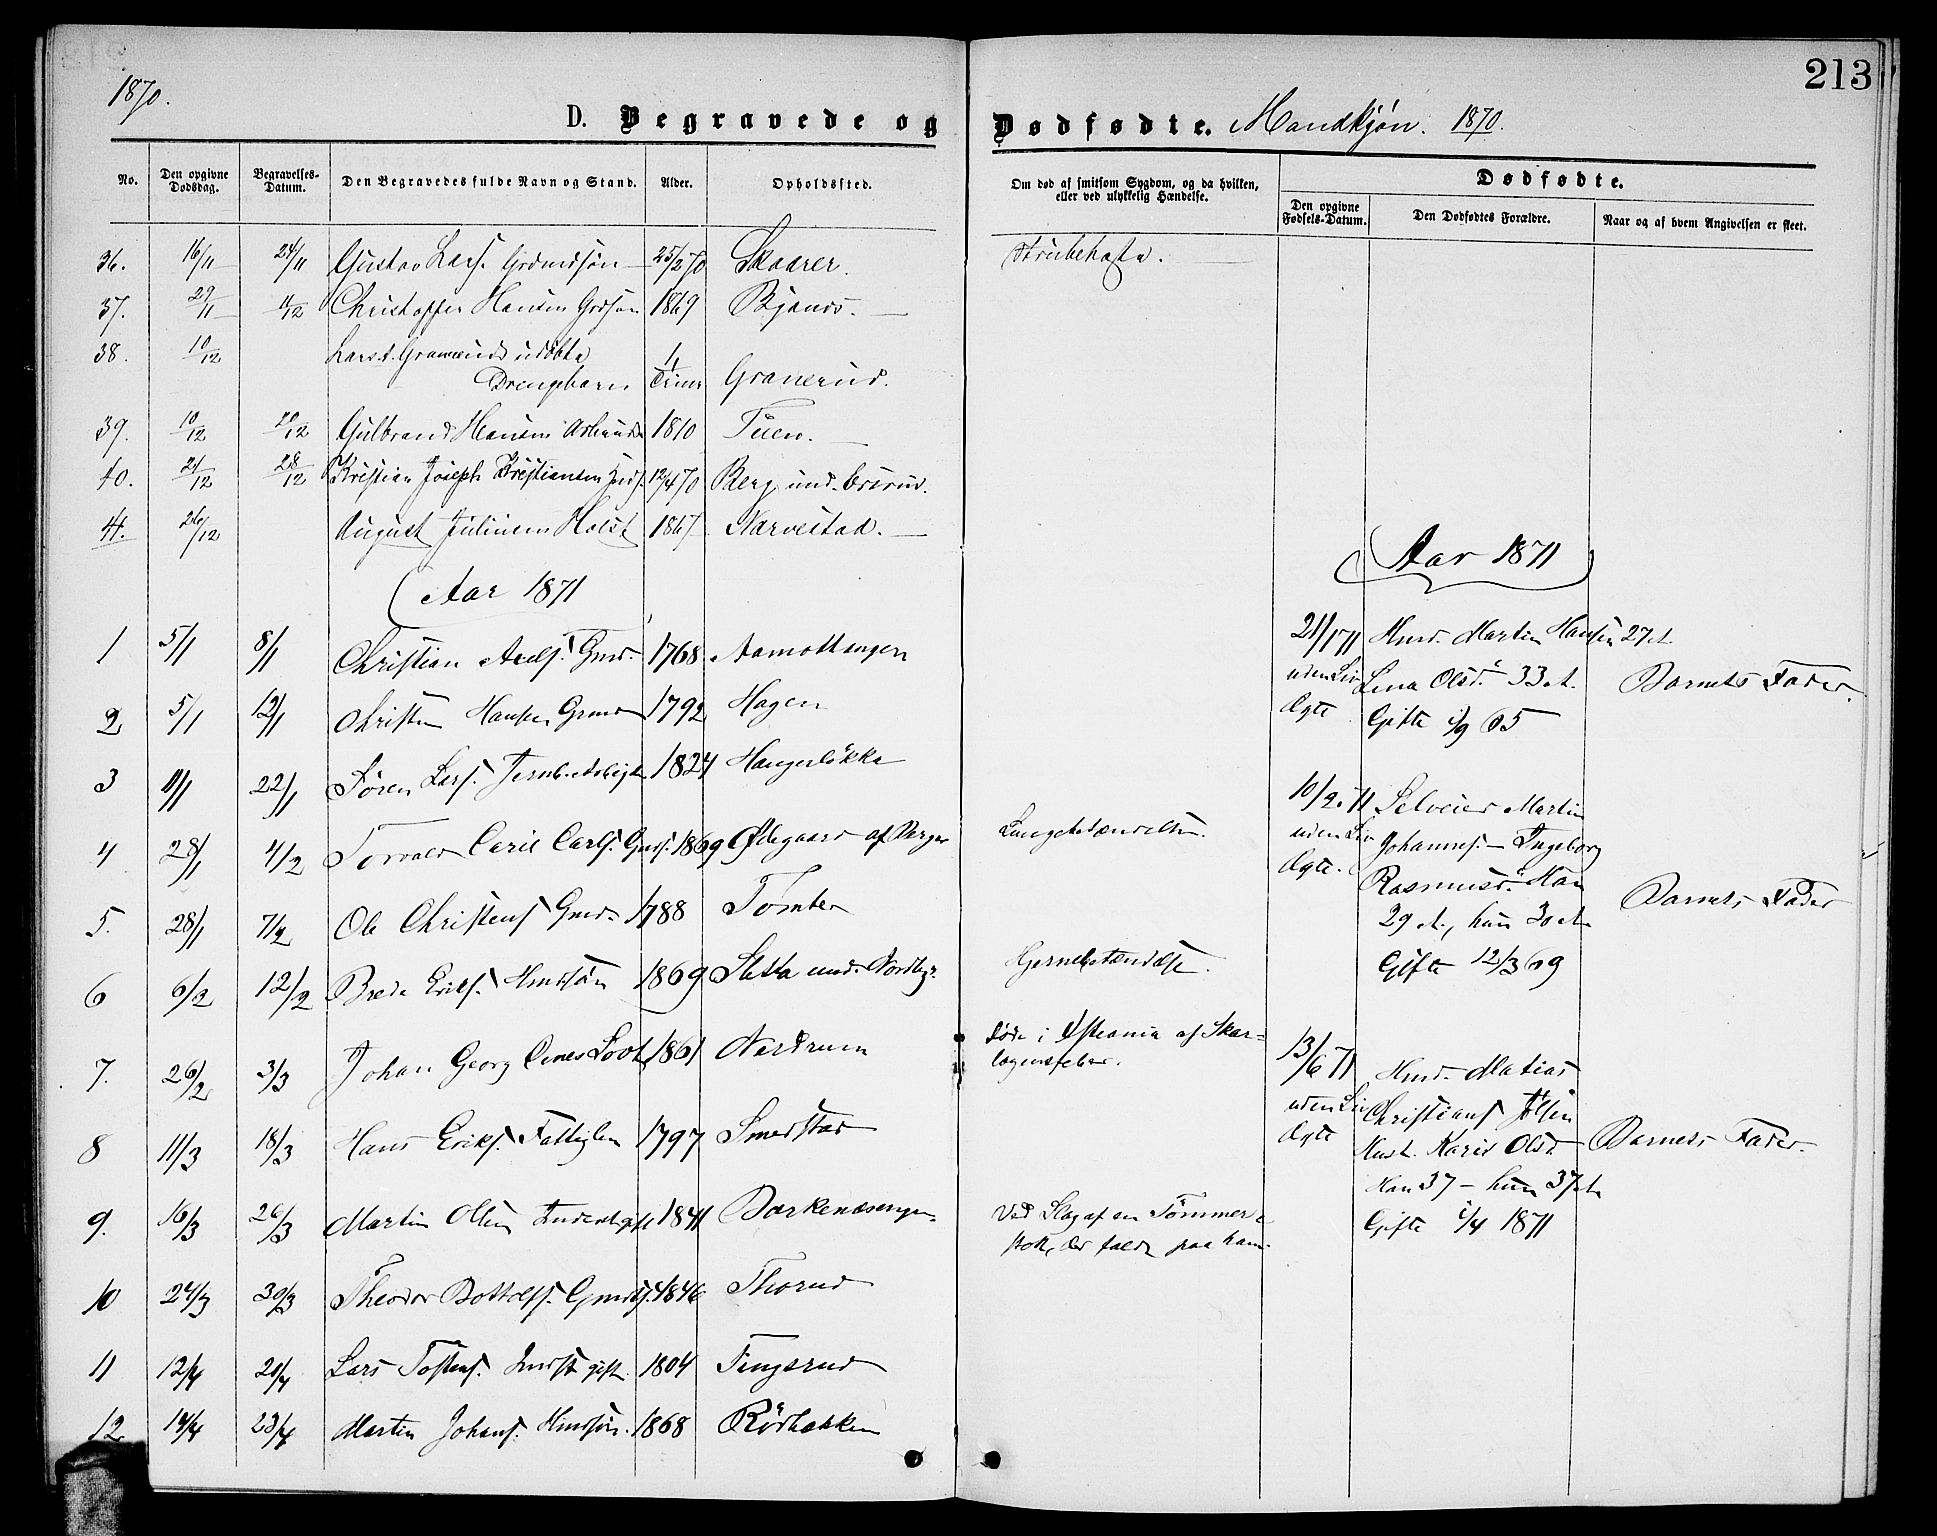 213
1870.
D. Begravede og Dødfødte. Mandkjøn. 1870.
No. | Den opgivne Dødsdag. | Begravelses-Datum. | Den Begravedes fulde Navn og Stand. | Alder. | Opholdssted. | Om død af smitsom Sygdom, og da hvilken, eller ved ulykkelig Hændelse. | Dødfødte.
Den opgivne Fødsels-Datum. | Den Dødfødtes Forældre. | Naar og af hvem Angivelsen er skeet.
36. 16/11 24/11 Gustav Lars. 25/2 70 Skaarer. Strubehoste.
37. 29/11 4/12 Christoffer Hansen 1869
38. 10/12 Lars Granerud udøbte
Drengebarn 1/4 Time Granerud.
39. 10/12 20/12 Gulbrand Hansen 1810 Tuen.
40. 21/12 28/12 Kristian Joseph Kristiansen 12/4 70 Berg und.
41. 26/12 August Juliusen Holst 1867 Narvestad.
Aar 1871
Aar 1871
1 5/1 8/1 Christian Axels. Gmd. 1768 Aamottangen
2 5/1 12/1 Christen Hansen Gmd 1792 Hagen
3 11/1 22/1 Søren Lars. 1824 Haugerløkka
4 28/1 4/2 Torvald Caril Carls. 1869 Ødegaard af Berger Lungebetændelse.
5. 28/1 7/2 Ole Christens Gmd. 1788 Tomter
6 6/2 12/2 Brede Eriks. Hmdsøn 1869 Sletta und. Nordbye. Hjernebetændelse.
7. 26/2 3/3 Johan Georg 1861 Nordrum Døde i Xstiania af Skar-
lagensfeber.
8 11/3 18/3 Hans Eriks. Fattiglem 1797 Smedstad
9. 16/3 26/3 Martin Olsen 1841 Barkenæsengen Ved Slag af en Tømmer-
stok, der faldt paa ham.
10 24/3 30/3 Theodor Bottolfs. 1846 Thorud
11 12/4 20/4 Lars Tostens. gift. 1804 Tingsrud
12 14/4 23/4 Martin Johans. Hmdsøn. 1868 Rødbakken
21/1 71 Hmd. Martin Hansen 27 A.
uden Liv Lina Olsd. 33 A. Barnets Fader.
Ægte Gifte 65
10/2 71 Selveier Martin
uden Liv Johannes. – Ingeborg
Ægte. Rasmusd. Han
29 A., hun 30 A. Barnets Fader
Gifte 12/3 69
13/6 71 Hmd. Matias
uden Liv Christians
Ægte Hust. Kari Olsd Barnets Fader.
Han 37 – hun 37 A.
Gifte 1871